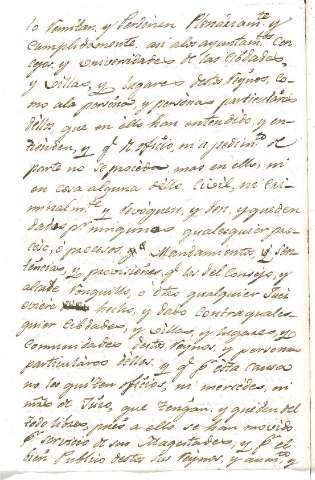 lo Remitan, y Perdonen Plenariam.te y
Cumplidamente, asi alos ayuntam.tos Con
cejos, y Universidades de las Cibdades,
y Villas, y lugares destos Reynos, co-
mo ala persona, y personas particulares
dellos, que en ello han entendido, y en-
tienden, y q.e de oficio, ni a pedim.to de
parte no se proceda mas en ello, ni
en cosa alguna dello Civil, ni Cri
minalm.te y revoquen, y den, y queden
dados p.r ningunos qualesquier pro-
ceso, ó procesos, Mandamientos, y Sen-
tencias, y provisiones q.e los del Consejo, y
alcalde Ronquillo, ó otro qualquier Juez
oviere hecho, y dado Contra quales-
quier Cibdades, y Villas, y lugares, y
Comunidades destos Reynos, y personas
particulares dellos, y q.e p.r esta causa
no les quiten oficios, ni mercedes, ni
mrs de Juro, que tengan, y queden del
todo libres, pues a ello se han movido
p.r servicio de sus Magestades, y p.r el
bien Publico destos sus Reynos, y